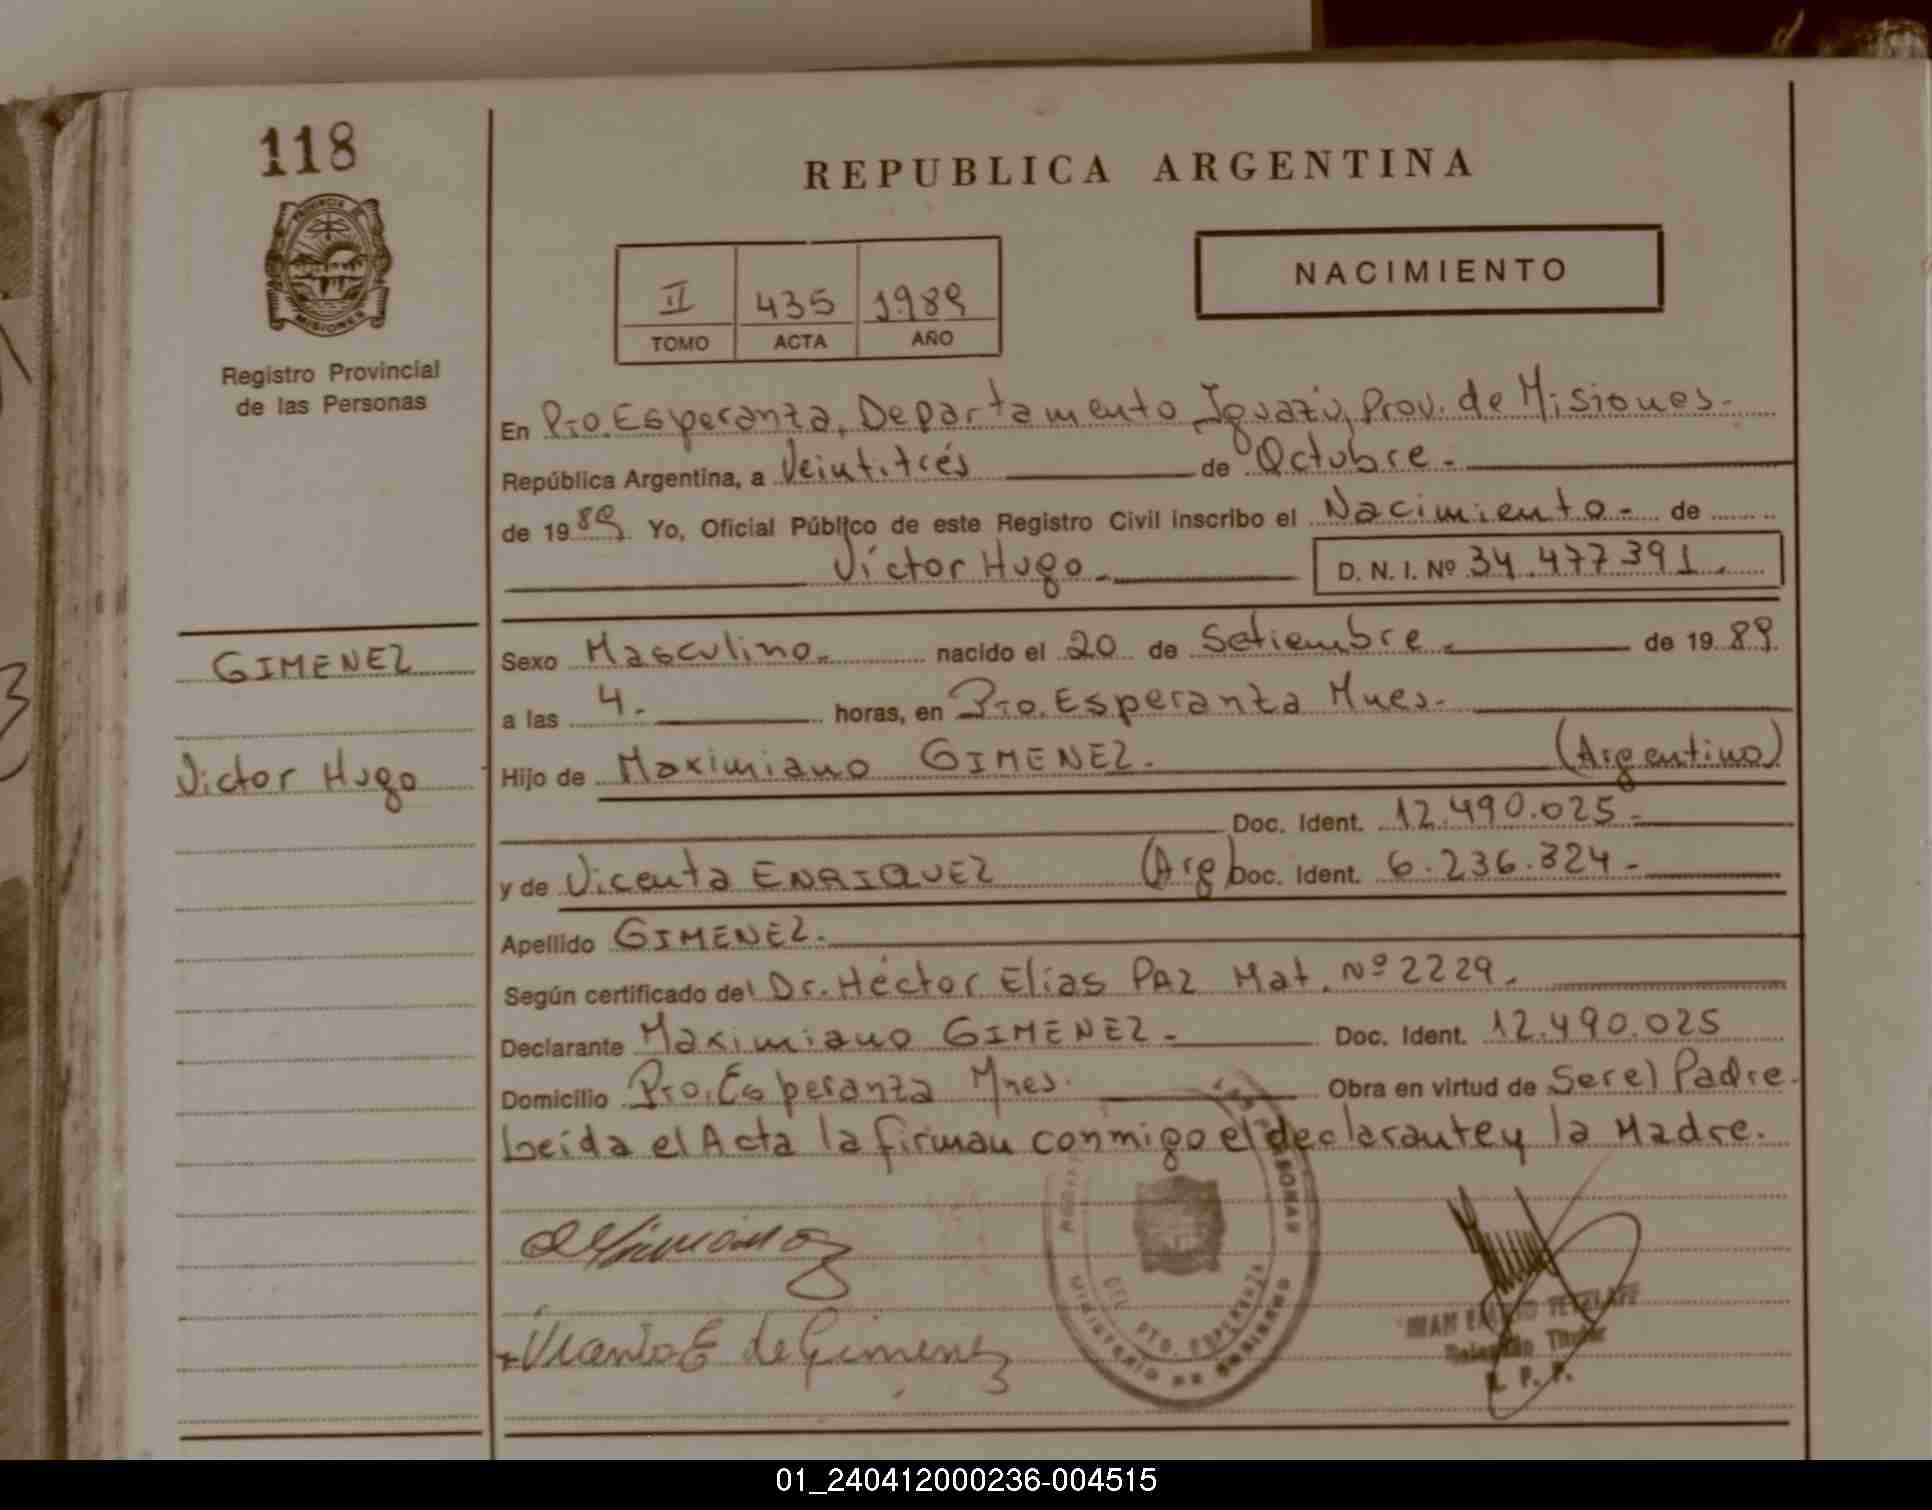 118
PROVINCIA DE
MISIONES
Registro Provincial
de las Personas
REPUBLICA ARGENTINA
II 435 1989
TOMO ACTA AÑO
NACIMIENTO
En Pto. Esperanza, Departamento Iguazú, Prov. de Misiones-
República Argentina, a Veintitrés de Octubre.-
de 1989 Yo, Oficial Público de este Registro Civil inscribo el Nacimiento- de
Víctor Hugo.- D. N. I. Nº 34.477.391.
GIMENEZ
Victor Hugo
Sexo Masculino.- nacido el 20 de Setiembre.- de 1989.
a las 4.- horas, en Pto. Esperanza Mnes.-
Hijo de Maximiano GIMENEZ.- (Argentino)
Doc. Ident. 12.490.025-
y de Vicenta ENRIQUEZ (Arg) Doc. Ident. 6.236.324-
Apellido GIMENEZ.-
Según certificado del Dr. Héctor Elías PAZ Mat. Nº 2229.
Declarante Maximiano GIMENEZ.- Doc. Ident. 12.490.025
Domicilio Pto. Esperanza Mnes. Obra en virtud de Ser el Padre.
Leída el Acta la firman conmigo el declarante y la Madre.
Vicenta E de Gimenez
MINISTERIO DE GOBIERNO
PTO. ESPERANZA
Titular
R. P. P.
01_240412000236-004515